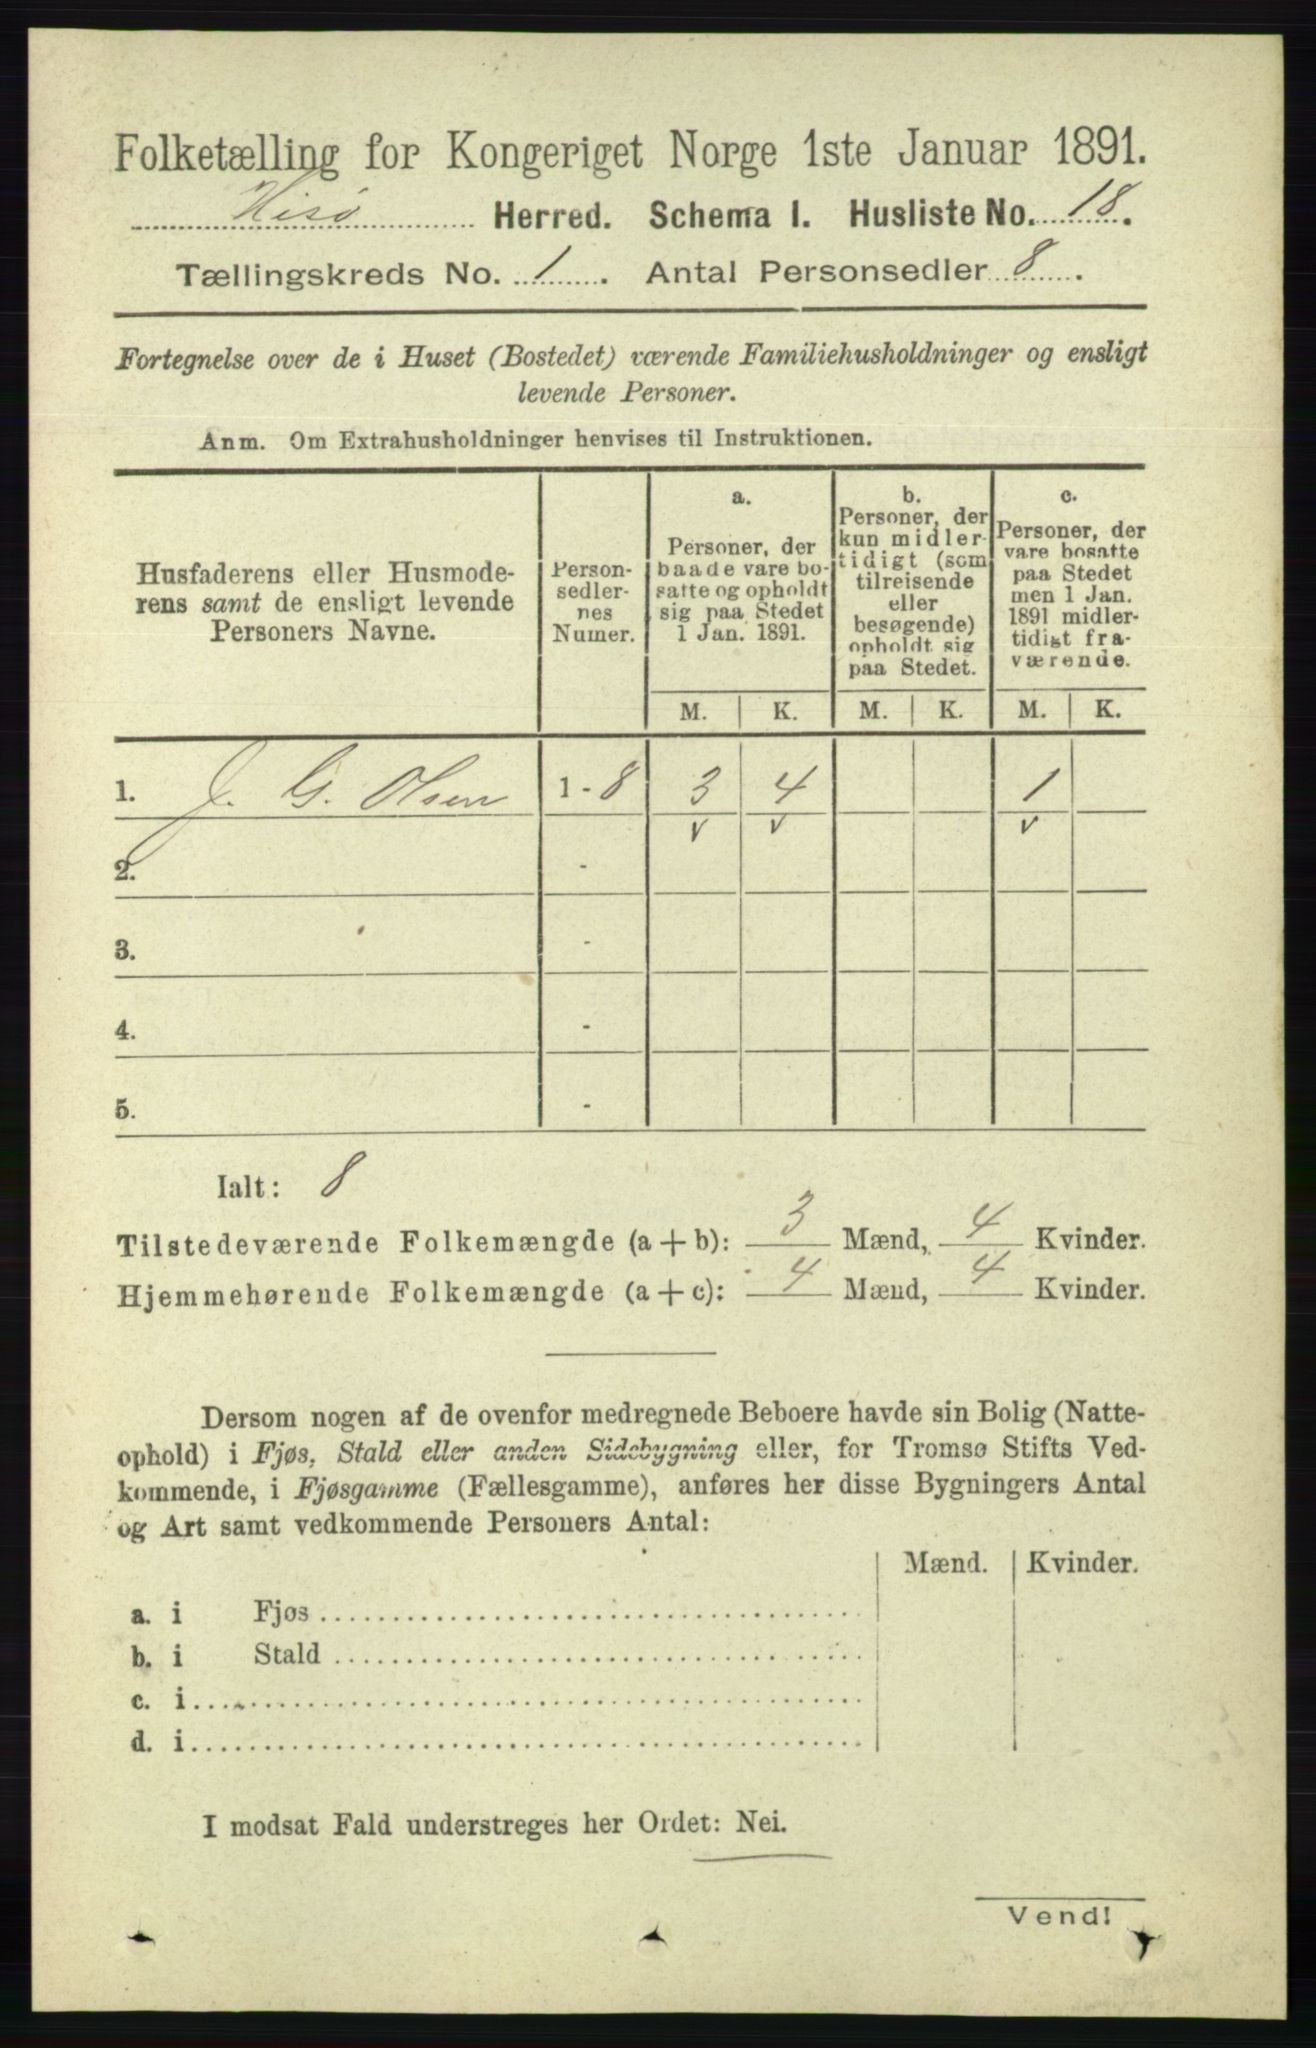 Folketælling for Kongeriget Norge 1ste Januar 1891.
Hisø Herred. Schema I. Husliste No. 18.
Tællingskreds No. 1. Antal Personsedler 8.
Fortegnelse over de i Huset (Bostedet) værende Familiehusholdninger og ensligt
levende Personer.
Anm. Om Extrahusholdninger henvises til Instruktionen.
Husfaderens eller Husmode-
rens samt de ensligt levende
Personers Navne.
Person-
sedler-
nes
Numer.
a.
Personer, der
baade vare bo-
satte og opholdt
sig paa Stedet
1 Jan. 1891.
b.
Personer, der
kun midler-
tidigt (som
tilreisende
eller
besøgende)
opholdt sig
paa Stedet.
c.
Personer, der
vare bosatte
paa Stedet
men 1 Jan.
1891 midler-
tidigt fra-
værende.
M. K. M. K. M. K.
1. J. G. Olsen 1-8 3 4 1
v v v
2. -
3. -
4. -
5. -
Ialt: 8
Tilstedeværende Folkemængde (a + b): 3 Mænd, 4 Kvinder.
Hjemmehørende Folkemængde (a + c): 4 Mænd, 4 Kvinder.
Dersom nogen af de ovenfor medregnede Beboere havde sin Bolig (Natte-
ophold) i Fjøs, Stald eller anden Sidebygning eller, for Tromsø Stifts Ved-
kommende, i Fjøsgamme (Fællesgamme), anføres her disse Bygningers Antal
og Art samt vedkommende Personers Antal:
Mænd. Kvinder.
a. i Fjøs
b. i Stald
c. i
d. i
I modsat Fald understreges her Ordet: Nei.
Vend!